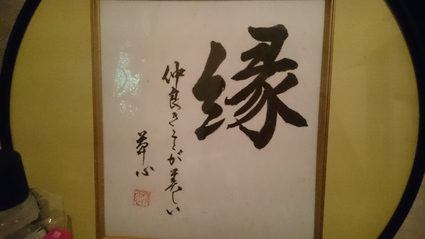 縁
仲良きことが美しい
華心